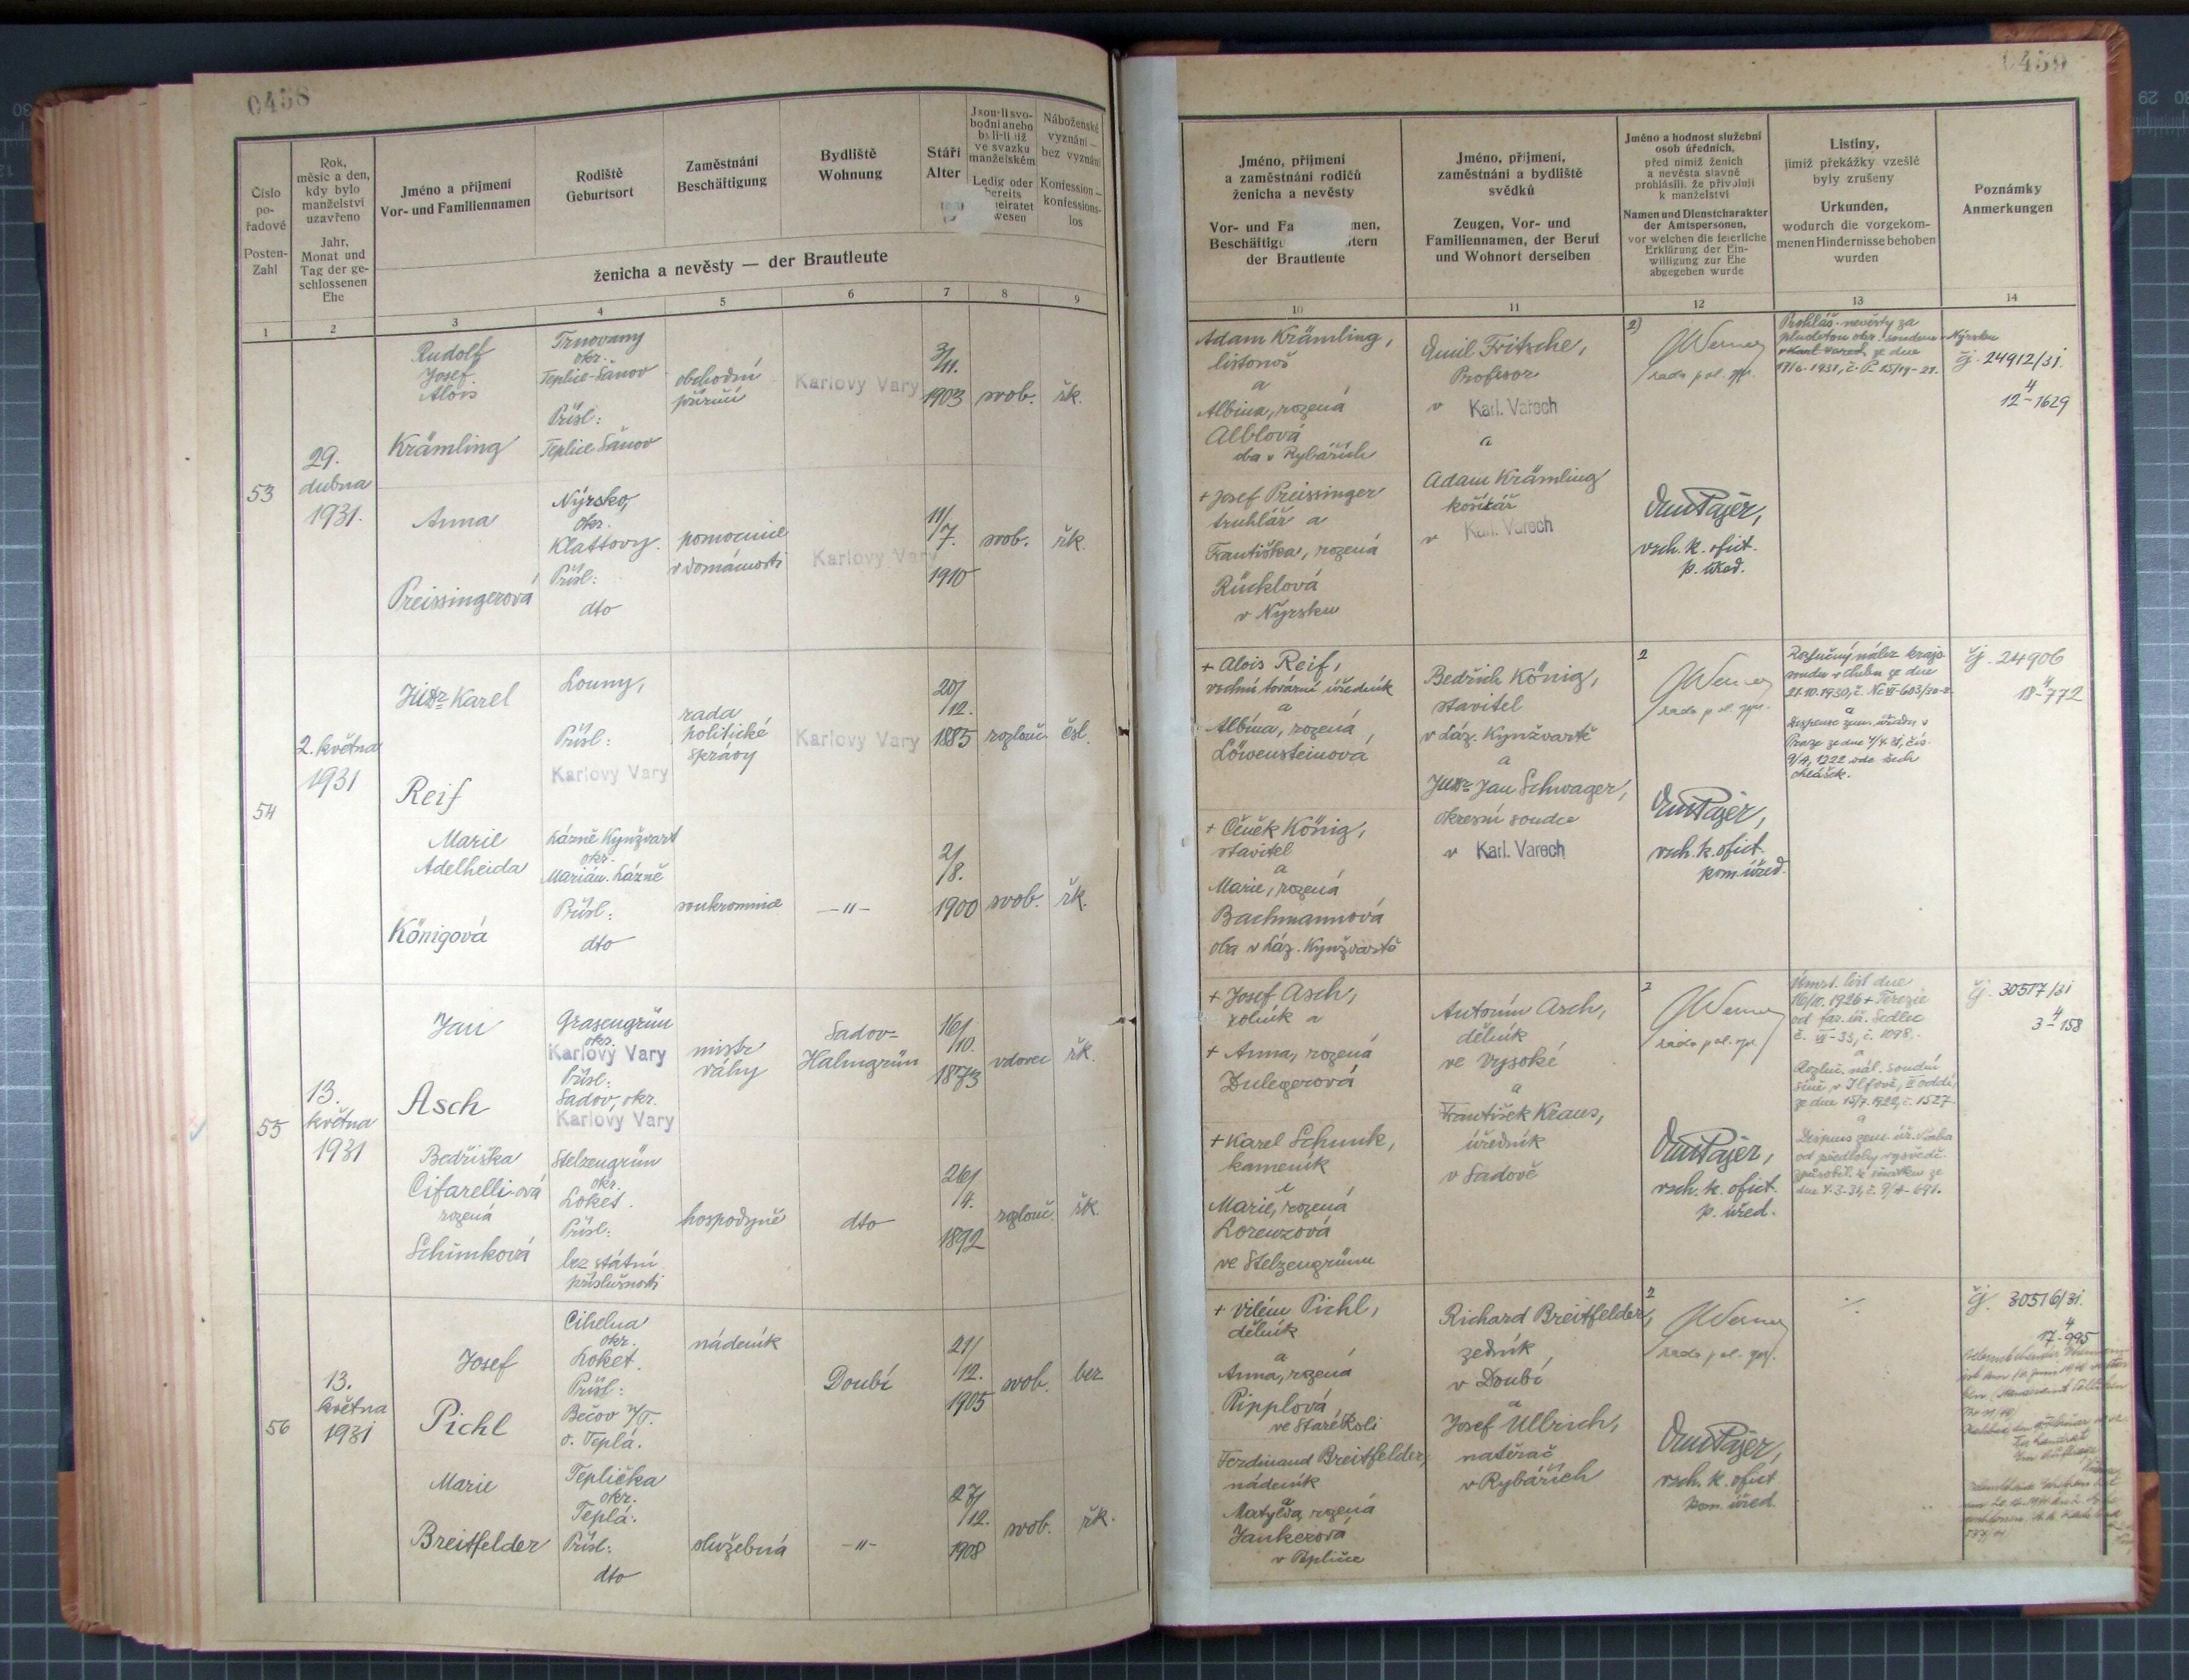 0458
Číslo
po-
řadové
Posten-
Zahl
Rok,
měsíc a den,
kdy bylo
manželství
uzavřeno
Jahr,
Monat und
Tag der ge-
schlossenen
Ehe
Jméno a příjmení
Vor- und Familiennamen
Rodiště
Geburtsort
Zaměstnání
Beschäftigung
Bydliště
Wohnung
Stáří
Alter
Jsou-li svo-
bodni anebo
byli-li již
ve svazku
manželském
Ledig oder
bereits
heiratet
wesen
Náboženské
vyznání —
bez vyznání
Konfession —
konfessions-
los
ženicha a nevěsty — der Brautleute
1 2 3 4 5 6 7 8 9
53
29.
dubna
1931.
Rudolf
Josef
Alois
Krämling
Trnovany
okr.
Teplic-Šanov
Přísl:
Teplic Šanov
obchodní
příručí
Karlovy Vary
3/
/11.
1903
svob.
řk.
Anna
Preissingerová
Nýrsko,
okr.
Klattovy.
Přísl:
dto
pomocnice
v domácnosti
Karlovy Vary
11/
/7.
1910
svob.
řk.
54
2. května
1931
JUDr Karel
Reif
Louny,
Přísl:
Karlovy Vary
rada
politické
správy
Karlovy Vary
20/
/12.
1885
rozlouč.
čsl.
Marie
Adelheida
Königová
Lázně Kynžvart
okr.
Marián. Lázně
Přísl:
dto
soukromnice
—"—
2/
/8.
1900
svob.
řk.
55
13.
května
1931
Jan
Asch
Grasengrün
okr.
Karlovy Vary
Přísl:
Sadov, okr.
Karlovy Vary
mistr
váhy
Sadov-
Halmgrün
16/
/10.
1873
vdovec
řk.
Bedřiška
Cifarelli-ová
rozená
Schimková
Stelzengrün
okr.
Loket.
Přísl:
bez státní
příslušnosti
hospodyně
dto
26/
/4.
1892
rozlouč.
řk.
56
13.
května
1931
Josef
Pichl
Cihelna
okr.
Loket.
Přísl:
Bečov n/T.
o. Teplá.
nádeník
Doubí
21/
/12.
1905
svob.
bez
Marie
Breitfelder
Teplička
okr.
Teplá.
Přísl:
dto
služebná
—"—
27/
/12.
1908
svob.
řk.
0459
Jméno, příjmení
a zaměstnání rodičů
ženicha a nevěsty
Vor- und Fa men,
Beschäftigu ltern
der Brautleute
Jméno, příjmení,
zaměstnání a bydliště
svědků
Zeugen, Vor- und
Familiennamen, der Beruf
und Wohnort derselben
Jméno a hodnost služební
osob úředních,
před nimiž ženich
a nevěsta slavně
prohlásili, že přivolují
k manželství
Namen und Dienstcharakter
der Amtspersonen,
vor welchen die feierliche
Erklärung der Ein-
willigung zur Ehe
abgegeben wurde
Listiny,
jimiž překážky vzešlé
byly zrušeny
Urkunden,
wodurch die vorgekom-
menen Hindernisse behoben
wurden
Poznámky
Anmerkungen
10 11 12 13 14
Adam Krämling,
listonoš
a
Albina, rozená
Alblová
oba v Rybářích
+ Josef Preissinger
truhlář a
Františka, rozená
Rücklová
v Nýrsku
Emil Fritsche,
Profesor
v Karl. Varech
a
Adam Krämling
košíkář
v Karl. Varech
2)
Werner
rada pol. spr.
Pajer,
vrch. k. ofict.
p. úřad.
Prohláš. nevěsty za
plnoletou okr. soudem v Nýrsku
v Karl. Varech ze dne
17/6. 1931, č.
čj. 24912/31.
4
12-1629
+ Alois Reif,
vrchní tovární úředník
a
Albína, rozená
Löwensteinová
+ Čeněk König,
stavitel
a
Marie, rozená
Bachmannová
oba v Láz. Kynžvartě
Bedřich König,
stavitel
v Láz. Kynžvartě
a
JUDr Jan Schwager,
okresní soudce
v Karl. Varech
2
Werner
rada pol. spr.
Pajer,
vrch. k. ofict.
kom. úřed.
Rozlučný nález krajs.
soudu v Chebu ze dne
21.10.1930, č. Nc VI-603/30-2.
a
Dispense zem. úřadu v
Praze ze dne 4/4. 31, čís.
9/4, 1222 ode všech
ohlášek.
čj. 24906
4
18-772
+ Josef Asch,
rolník a
+ Anna, rozená
Dulegerová
+ Karel Schimk,
kameník
a
Marie, rozená
Lorenzová
ve Stelzengrünu
Antonín Asch,
dělník
ve Vysoké
a
František Kraus,
úředník
v Sadově
2
Werner
rada pol. spr.
Pajer,
vrch. k. ofict.
p. úřed.
Úmrt. list dne
1926 + Terezie
od far. úř. Sedlec
č. VI-33, č. 1098.
a
Rozluč. nál. soudní
síně v Ilfově, II odděl,
ze dne 15/7. 1922, č. 1527.
a
Dispens zem. úř. Praha
od předlohy vysvědč.
způsobil. k sňatku ze
dne 4.3-31, č. 9/4-691.
čj. 30517/31
4
3-158
+ Vilém Pichl,
dělník
a
Anna, rozená
Ripplová,
ve Staré Roli
Ferdinand Breitfelder,
nádeník
a
Matylda, rozená
Jankerová
v Tepličce
Richard Breitfelder,
zedník
v Doubí
a
Josef Ullrich,
natěrač
v Rybářích
2
Werner
rada pol. spr.
Pajer,
vrch. k. ofict
kom. úřed.
./.
čj. 30516/31.
4
17-995